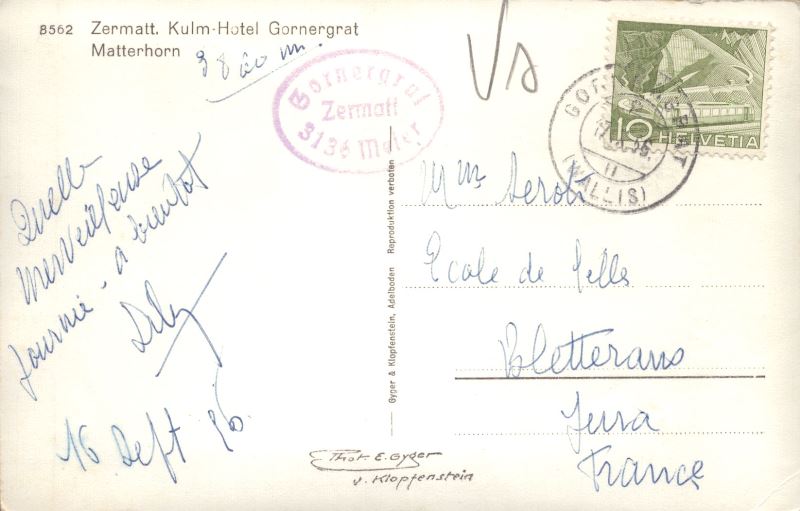 8562 Zermatt. Kulm-Hotel Gornergrat
Matterhorn
3800 m.
Gornergrat
Zermatt
3136 Meter
Vs
10 HELVETIA
GORNERGRAT
(WALLIS)
Quelle
merveilleuse
journée - a bientot
16 Sept 56
Reproduktion verboten
Gyger & Klopfenstein, Adelboden
Mme
Ecole de filles
Bletterans
Jura
France
Phot. E. Gyger
v. Klopfenstein